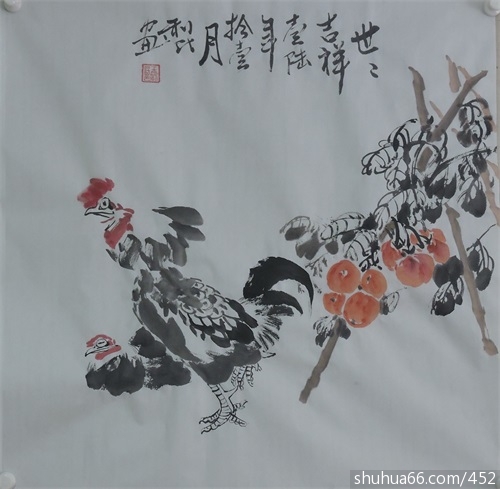 世〻
吉祥
壹陆
年
拾壹
月
画
shuhua66.com/452